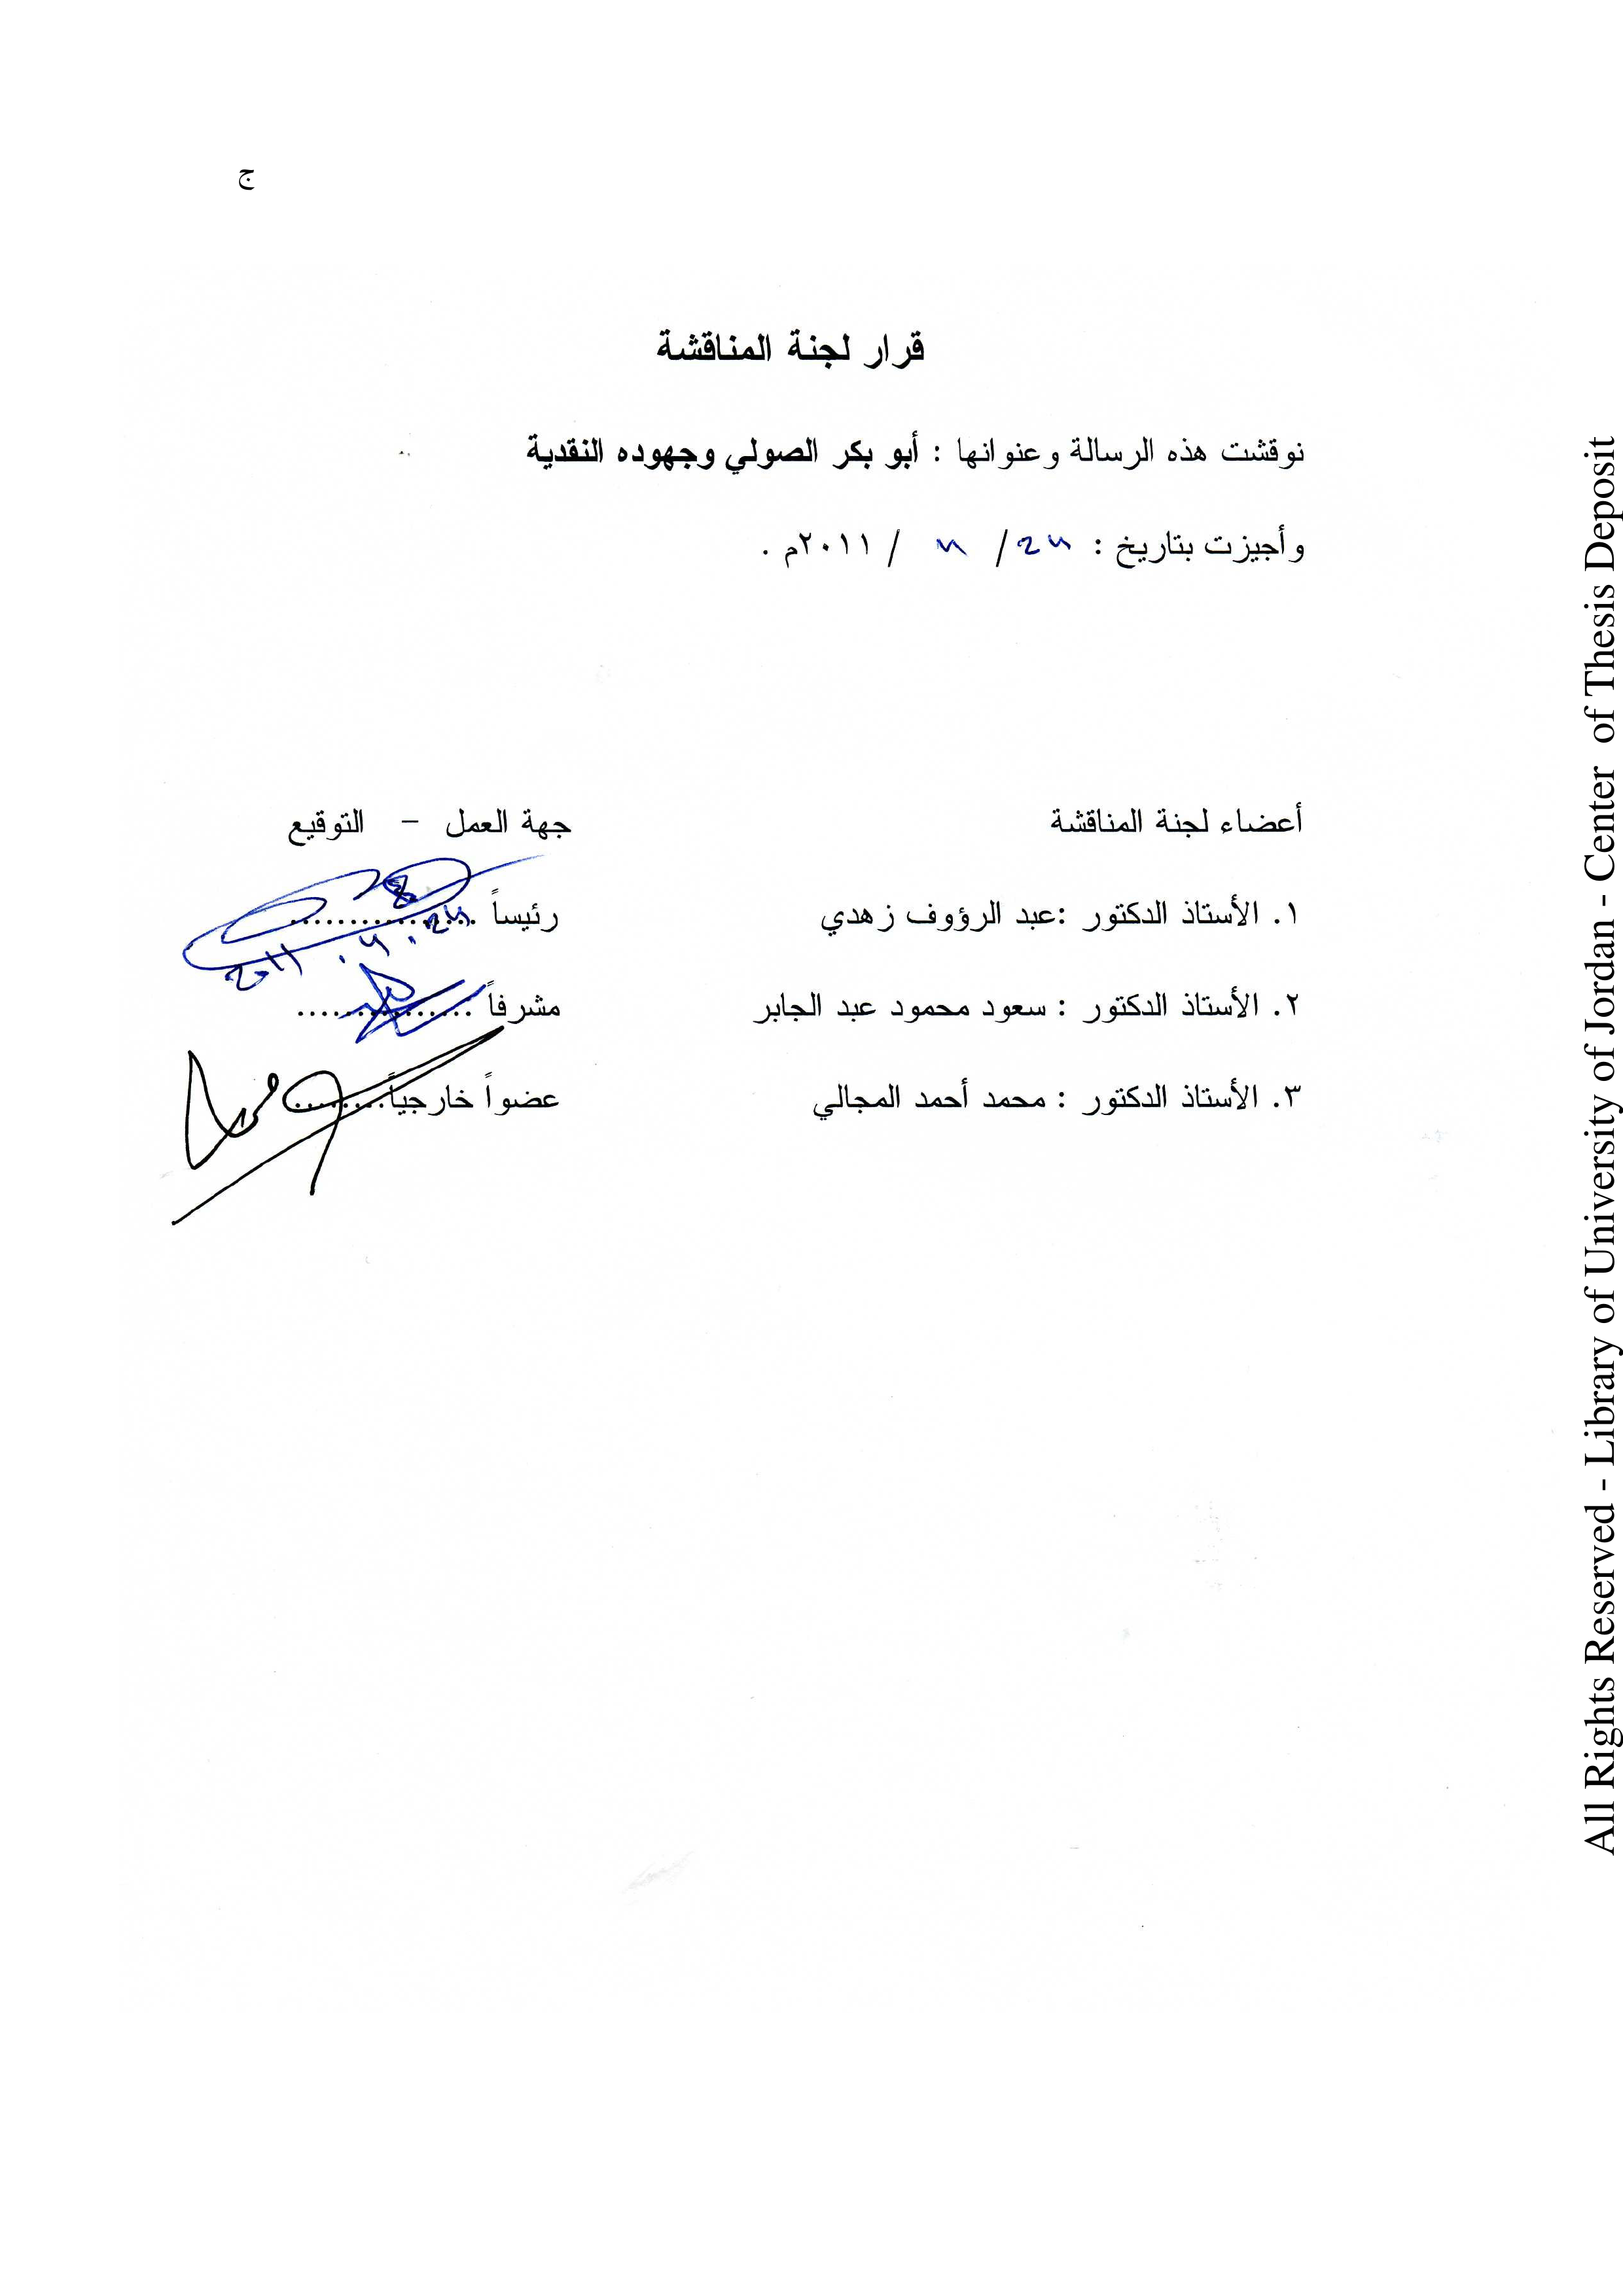 ج
قرار لجنة المناقشة
نوقشت هذه الرسالة وعنوانها : أبو بكر الصولي وجهوده النقدية
وأجيزت بتاريخ : / / ٢٠١١م .
أعضاء لجنة المناقشة جهة العمل – التوقيع
١. الأستاذ الدكتور :عبد الرؤوف زهدي رئيساً ................
٢. الأستاذ الدكتور : سعود محمود عبد الجابر مشرفاً ...............
٣. الأستاذ الدكتور : محمد أحمد المجالي عضواً خارجياً........
All Rights Reserved - Library of University of Jordan - Center of Thesis Deposit